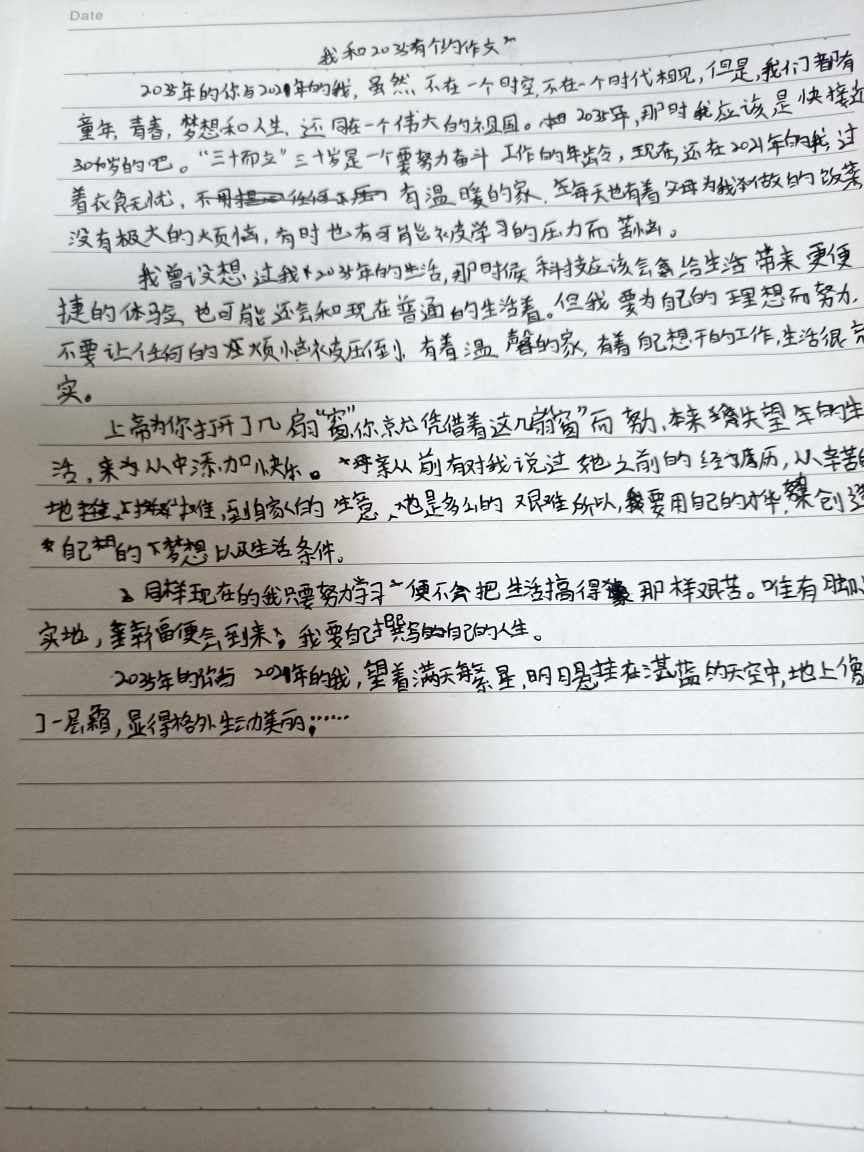 Date
我和2035有个约作文
2035年的你与2021年的我，虽然不在一个时空，不在一个时代相见，但是，我们都有
童年，青春，梦想和人生，还同在一个伟大的祖国。2035年，那时我应该是快接近
30岁的吧。“三十而立”三十岁是一个要努力奋斗工作的年龄，现在，还在2021年的我，过
着衣食无忧，不用 有温暖的家，每天也有着父母为我做的饭菜
没有极大的烦恼，有时也有可能被学习的压力而苦恼。
我曾设想过我2035年的生活，那时候科技应该会给生活带来更便
捷的体验，也可能还会和现在普通的生活着。但我要为自己的理想而努力，
不要让任何的烦恼被压倒，有着温馨的家，有着自己想干的工作，生活很充
实。
上帝为你打开了几扇“窗”，你就凭借着这几扇窗”而努力，本来失望的生
活，来为从中添加快乐。母亲从前有对我说过她之前的经历，从辛苦的
地摊，到自家的生意，也是多么的艰难所以，我要用自己的才华，来创造
自己的梦想以及生活条件。
同样现在的我只要努力学习便不会把生活搞得那样艰苦。唯有脚踏
实地，幸福便会到来，我要自己撰写自己的人生。
2035年的你与2021年的我，望着满天繁星，明月悬挂在湛蓝的天空中，地上像
了一层霜，显得格外生动美丽；……